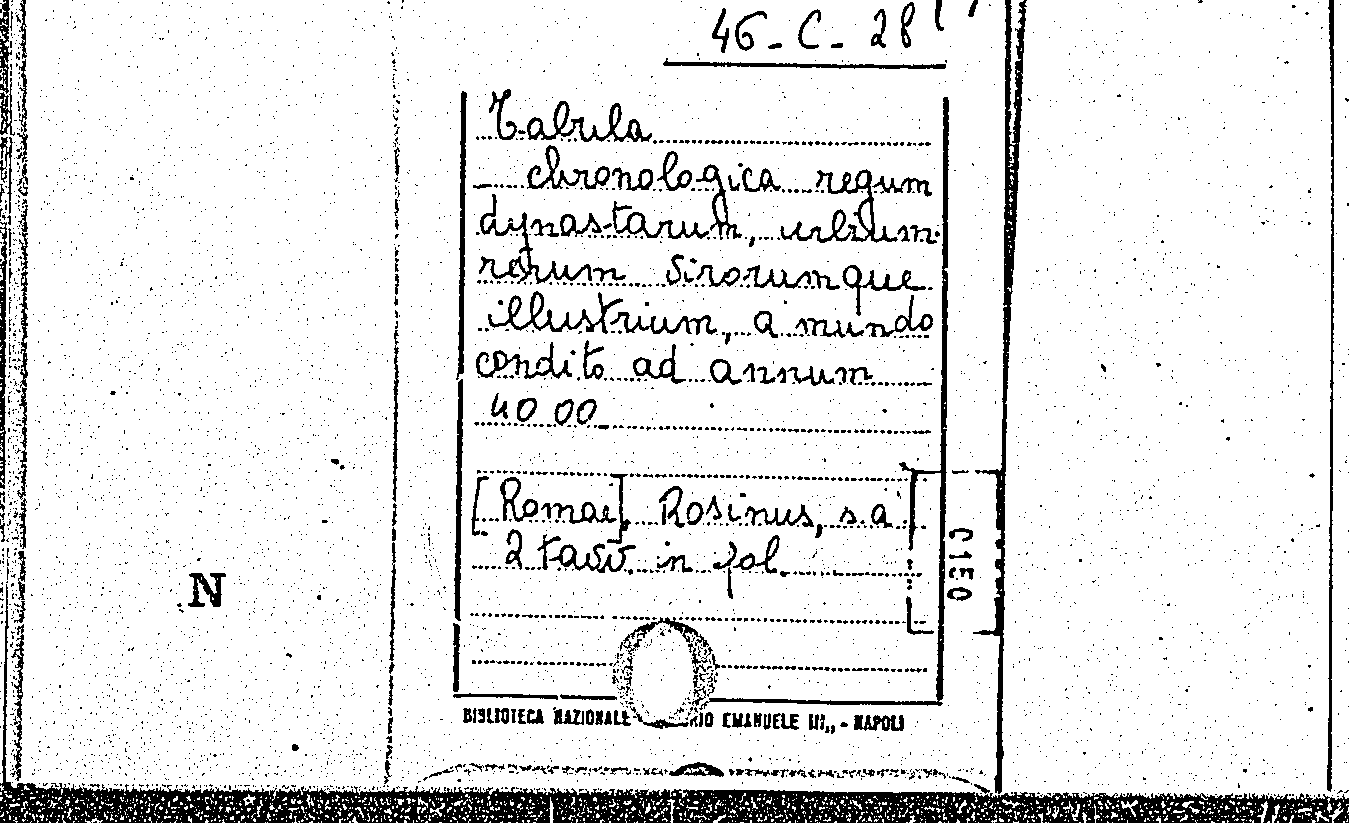 46-C-28
Tabula
chronologica regum
dynastarum, urbium
rerum sirorumque
illustrium, a mundo
condito ad annum
4000
[Romae], Rosinus, s.a.
2 tavv. in fol.
N
BIBLIOTECA NAZIONALE EMANUELE III,, - NAPOLI